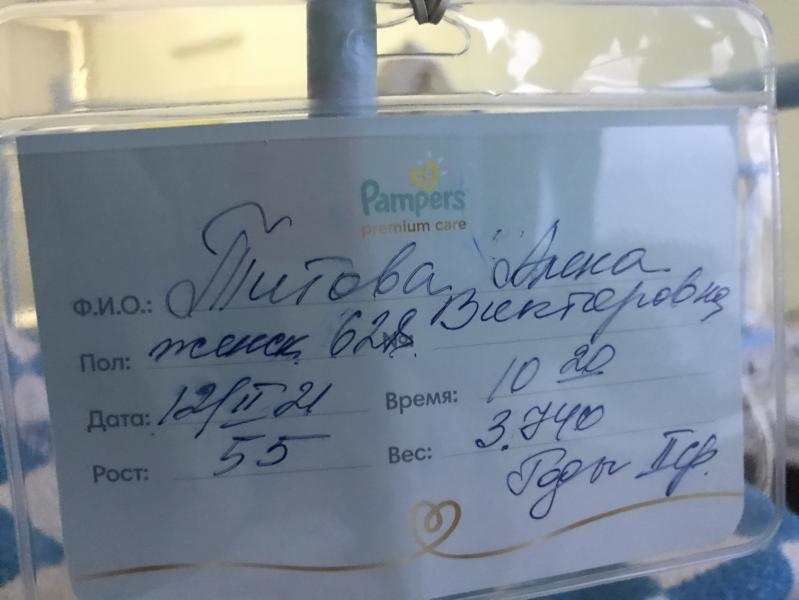 Pampers
premium care
Ф.И.О.: Титова Алена
Викторовна
Пол: женск. 628
Дата: 12/II 21 Время: 10 20
Рост: 55 Вес: 3.740
Роды II ср.